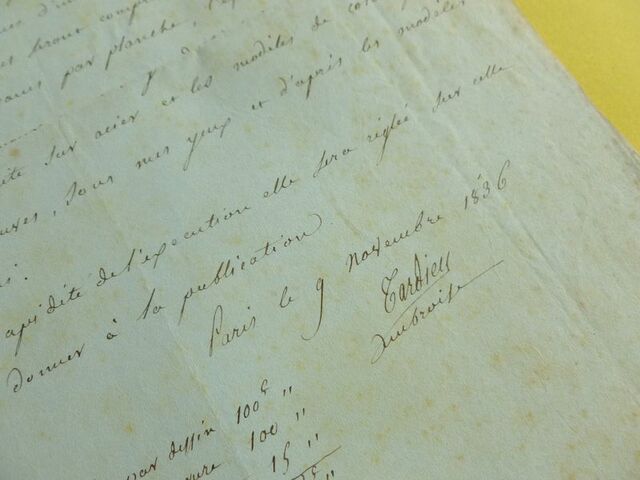 et seront compris
par planche,
sur acier et les modèles de
sous mes yeux et d'après les modèles
apidité de l'execution elle sera réglée sur celle
donner à la publication.
Paris le 9 novembre 1836
Tardieu
Ambroise
par dessin 100f "
100 "
15 "